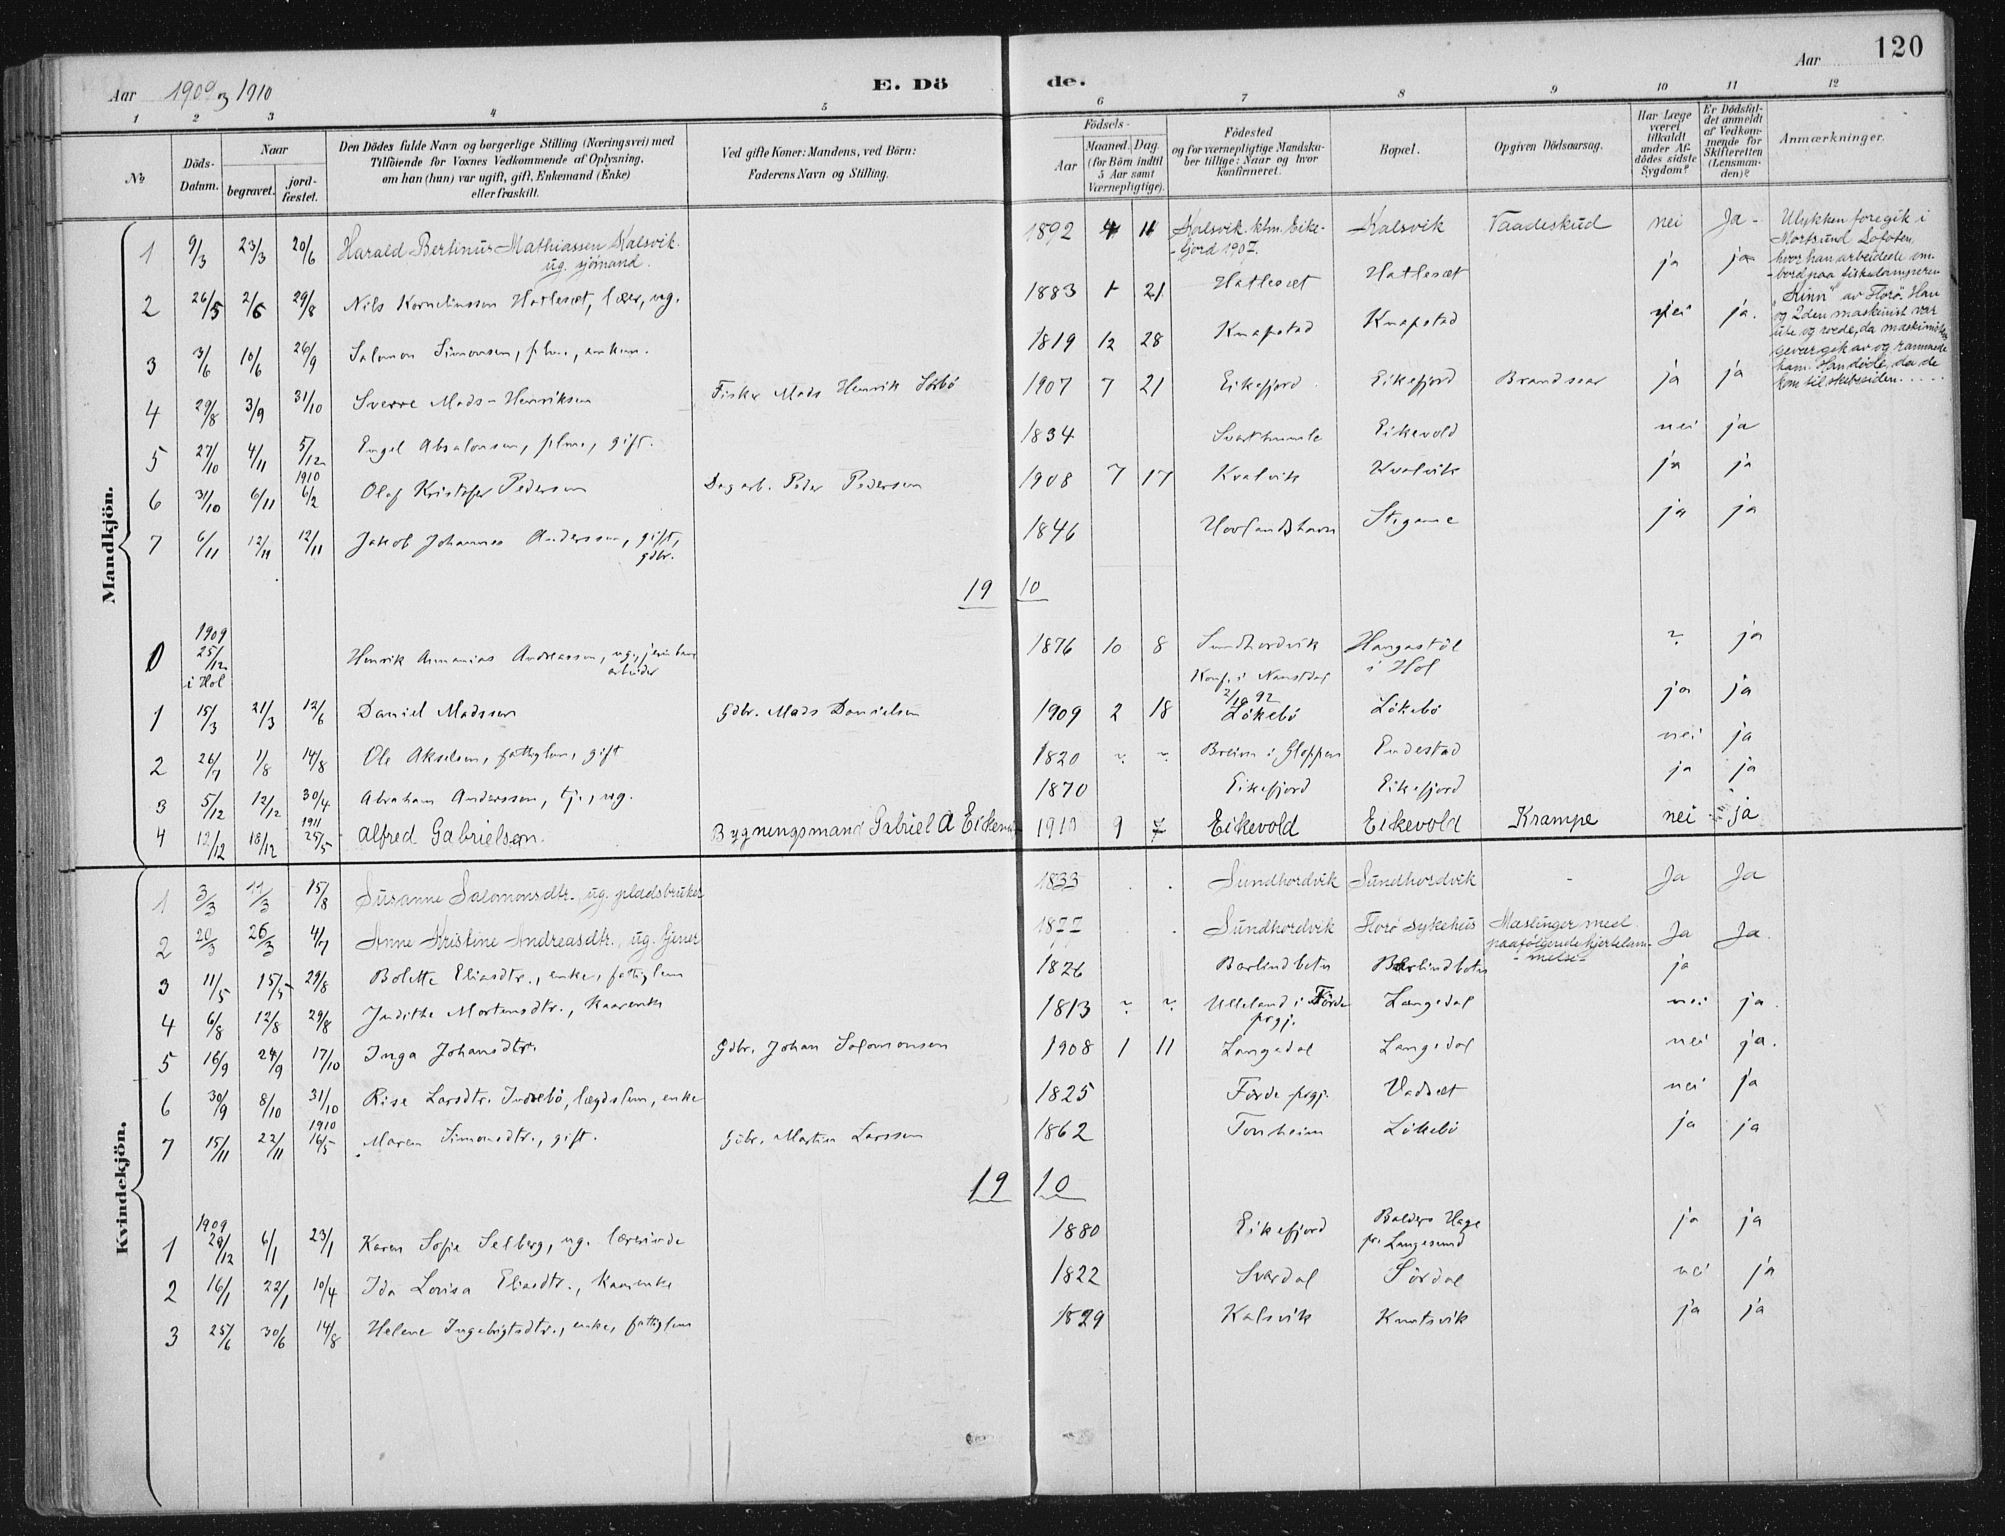 120
Aar 1909 og 1910
E. Dö de.
Aar
1 2 3 4 5 6 7 8 9 10 11 12
No
Döds-Datum.
Naar
begravet.
jord-fæstet.
Den Dödes fulde Navn og borgerlige Stilling (Næringsvei) med
Tilföiende for Voxnes Vedkommende af Oplysning,
om han (hun) var ugift, gift, Enkemand (Enke)
eller fraskilt.
Ved gifte Koner: Mandens, ved Börn:
Faderens Navn og Stilling.
Födsels-
Aar
Maaned. Dag.
(for Börn indtil
5 Aar samt
Værnepligtige).
Födested
og for værnepligtige Mandska-
ber tillige: Naar og hvor
konfirmeret.
Bopæl.
Opgiven Dödsaarsag.
Har Læge
været
tilkaldt
under Af-
dödes sidste
Sygdom?
Er Dödsfal-
det anmeldt
af Vedkom-
mende for
Skifteretten
(Lensman-
den)?
Anmærkninger.
Mandkjön.
1 9/3 23/3 20/6 Harald Bertinus Mathiassen Kalsvik. ug. sjömand. 1892 4 11 Kalsvik. kfm. Eike-fjord 1907. Kalsvik Vaadeskud nei Ja-
Ulykken foregik i
Mortsund Lofoten,
hvor han arbeidede om-
bord paa fiskedamperen
"Kinn" av Florö. Han
og 2den maskinist var
ute og roede, da maskinistens
gevær gik av og rammede
ham. Han döde, da de
kom til skibssiden.....
2 26/5 2/6 29/8 Nils Korneliussen Hatleset, lærer, ug. 1883 1 21 Hatleset Hatleset ja ja
3 3/6 10/6 26/9 Salomon Simonsen, plm., enkem. 1819 12 28 Knapstad Knapstad nei ja.
4 29/8 3/9 31/10 Sverre Mads-Henriksen Fisker Mads Henrik Sörbö 1907 7 21 Eikefjord Eikefjord Brandsaar ja ja
5 27/10 4/11 5/12 Engel Absalonsen, plm., gift. 1834 Svarthumle Eikevold nei ja
6 31/10 6/11 1910 6/2 Olaf Kristofer Pedersen Dagarb. Peder Pedersen 1908 7 17 Kvalvik Kvalvik ja ja
7 6/11 12/11 12/11 Jakob Johannes Anderssen, gift, gdbr. 1846 Hovlandshavn Stegane ja ja
1910
0 1909 25/12 i Hol Henrik Annanias Andreassen, ug., jernbanearbeider 1876 10 8 Sundhordvik Konf. i Naustdal 2/10 92 Haugastöl i Hol ? ja
1 15/3 21/3 12/6 Daniel Madssen Gdbr. Mads Danielsen 1909 2 18 Lökebö Lökebö ja ja
2 26/7 1/8 14/8 Ole Akselsen, fattiglem, gift 1820 ? ? Breim i Gloppen Endestad nei ja
3 5/12 12/12 30/4 Abraham Anderssen, tj., ug. 1870 Eikefjord Eikefjord ja ja
4 12/12 18/12 1911 25/5 Alfred Gabrielsen. Bygningsmand Gabriel A Eikevold 1910 9 7 Eikevold Eikevold Krampe nei ja
Kvindekjön.
1 3/3 11/3 15/8 Susanne Salomonsdtr., ug. pladsbruker 1833 Sundhordvik Sundhordvik Ja Ja
2 20/3 26/3 4/7 Anne Kristine Andreasdtr., ug. tjener 1877 Sundhordvik Florö sykehus Meslinger med paafölgende hjertelammelse Ja Ja.
3 11/5 15/5 29/8 Bolette Eliasdtr., enke, fattiglem 1826 Barlindbotn Barlindbotn ja
4 6/8 12/8 29/8 Judithe Mortensdtr., kaarenke 1813 ? ? Ulleland i Förde prgj. Langedal nei ja.
5 16/9 24/9 17/10 Inga Johansdtr. Gdbr. Johan Salomonsen 1908 1 11 Langedal Langedal nei ja.
6 30/9 8/10 31/10 Rise Larsdtr. Indrebö, lægdslem, enke 1825 Förde prgj. Vadset nei ja
7 15/11 22/11 1910 16/5 Maren Simonsdtr., gift. Gdbr. Martin Larssen 1862 Tonheim Lökebö ja ja
1910
1 1909 29/12 6/1 23/1 Karen Sofie Selberg, ug. lærerinde 1880 Eikefjord Balders Hage pr. Langesund ja ja
2 16/1 22/1 10/4 Ida Lovisa Eliasdtr., kaarenke 1822 Svardal Sördal nei ja
3 25/6 30/6 14/8 Helene Ingebrigtsdtr., enke, fattiglem 1829 Kalsvik Knutsvik ja ja